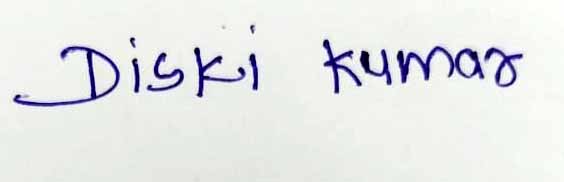 Diski kumar